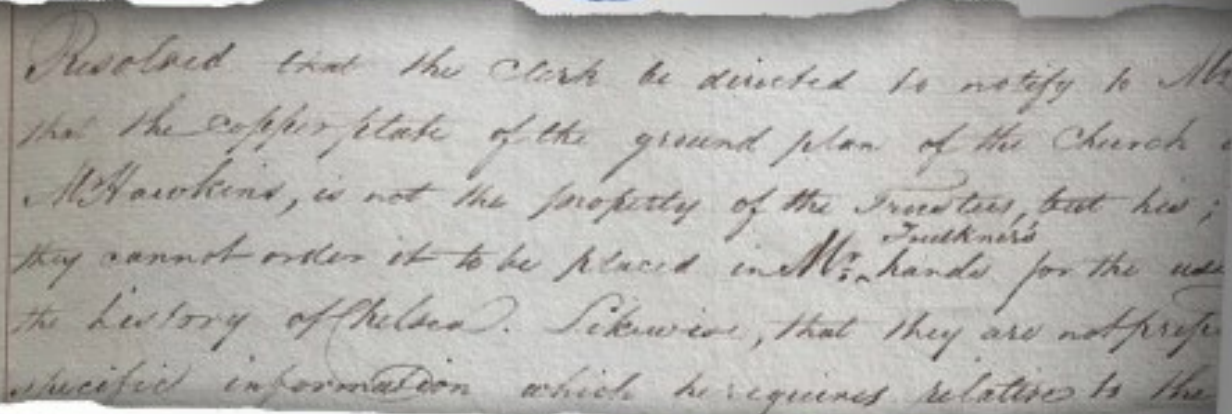 Resolved that the Clerk be directed to notify to
that the copper plate of the ground plan of the Church
Mr Hawkins, is not the property of the Trustees, but his;
they cannot order it to be placed in Mr. Faulkner's hands for the use
the history of Chelsea. Likewise, that they are not
specific information which he requires relative to the